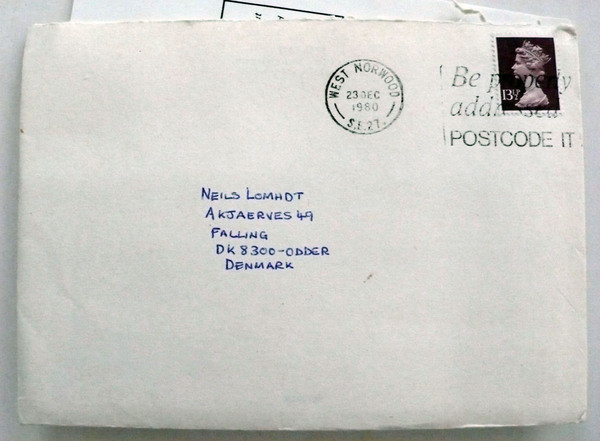 WEST NORWOOD
23 DEC
1980
S.E.27.
Be properly
addressed
POSTCODE IT
13½P
NEILS LOMHDT
AKJAERVES 49
FALLING
DK 8300-ODDER
DENMARK